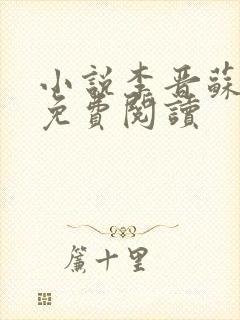 小說李晋蘇
免費閱讀
簾十里